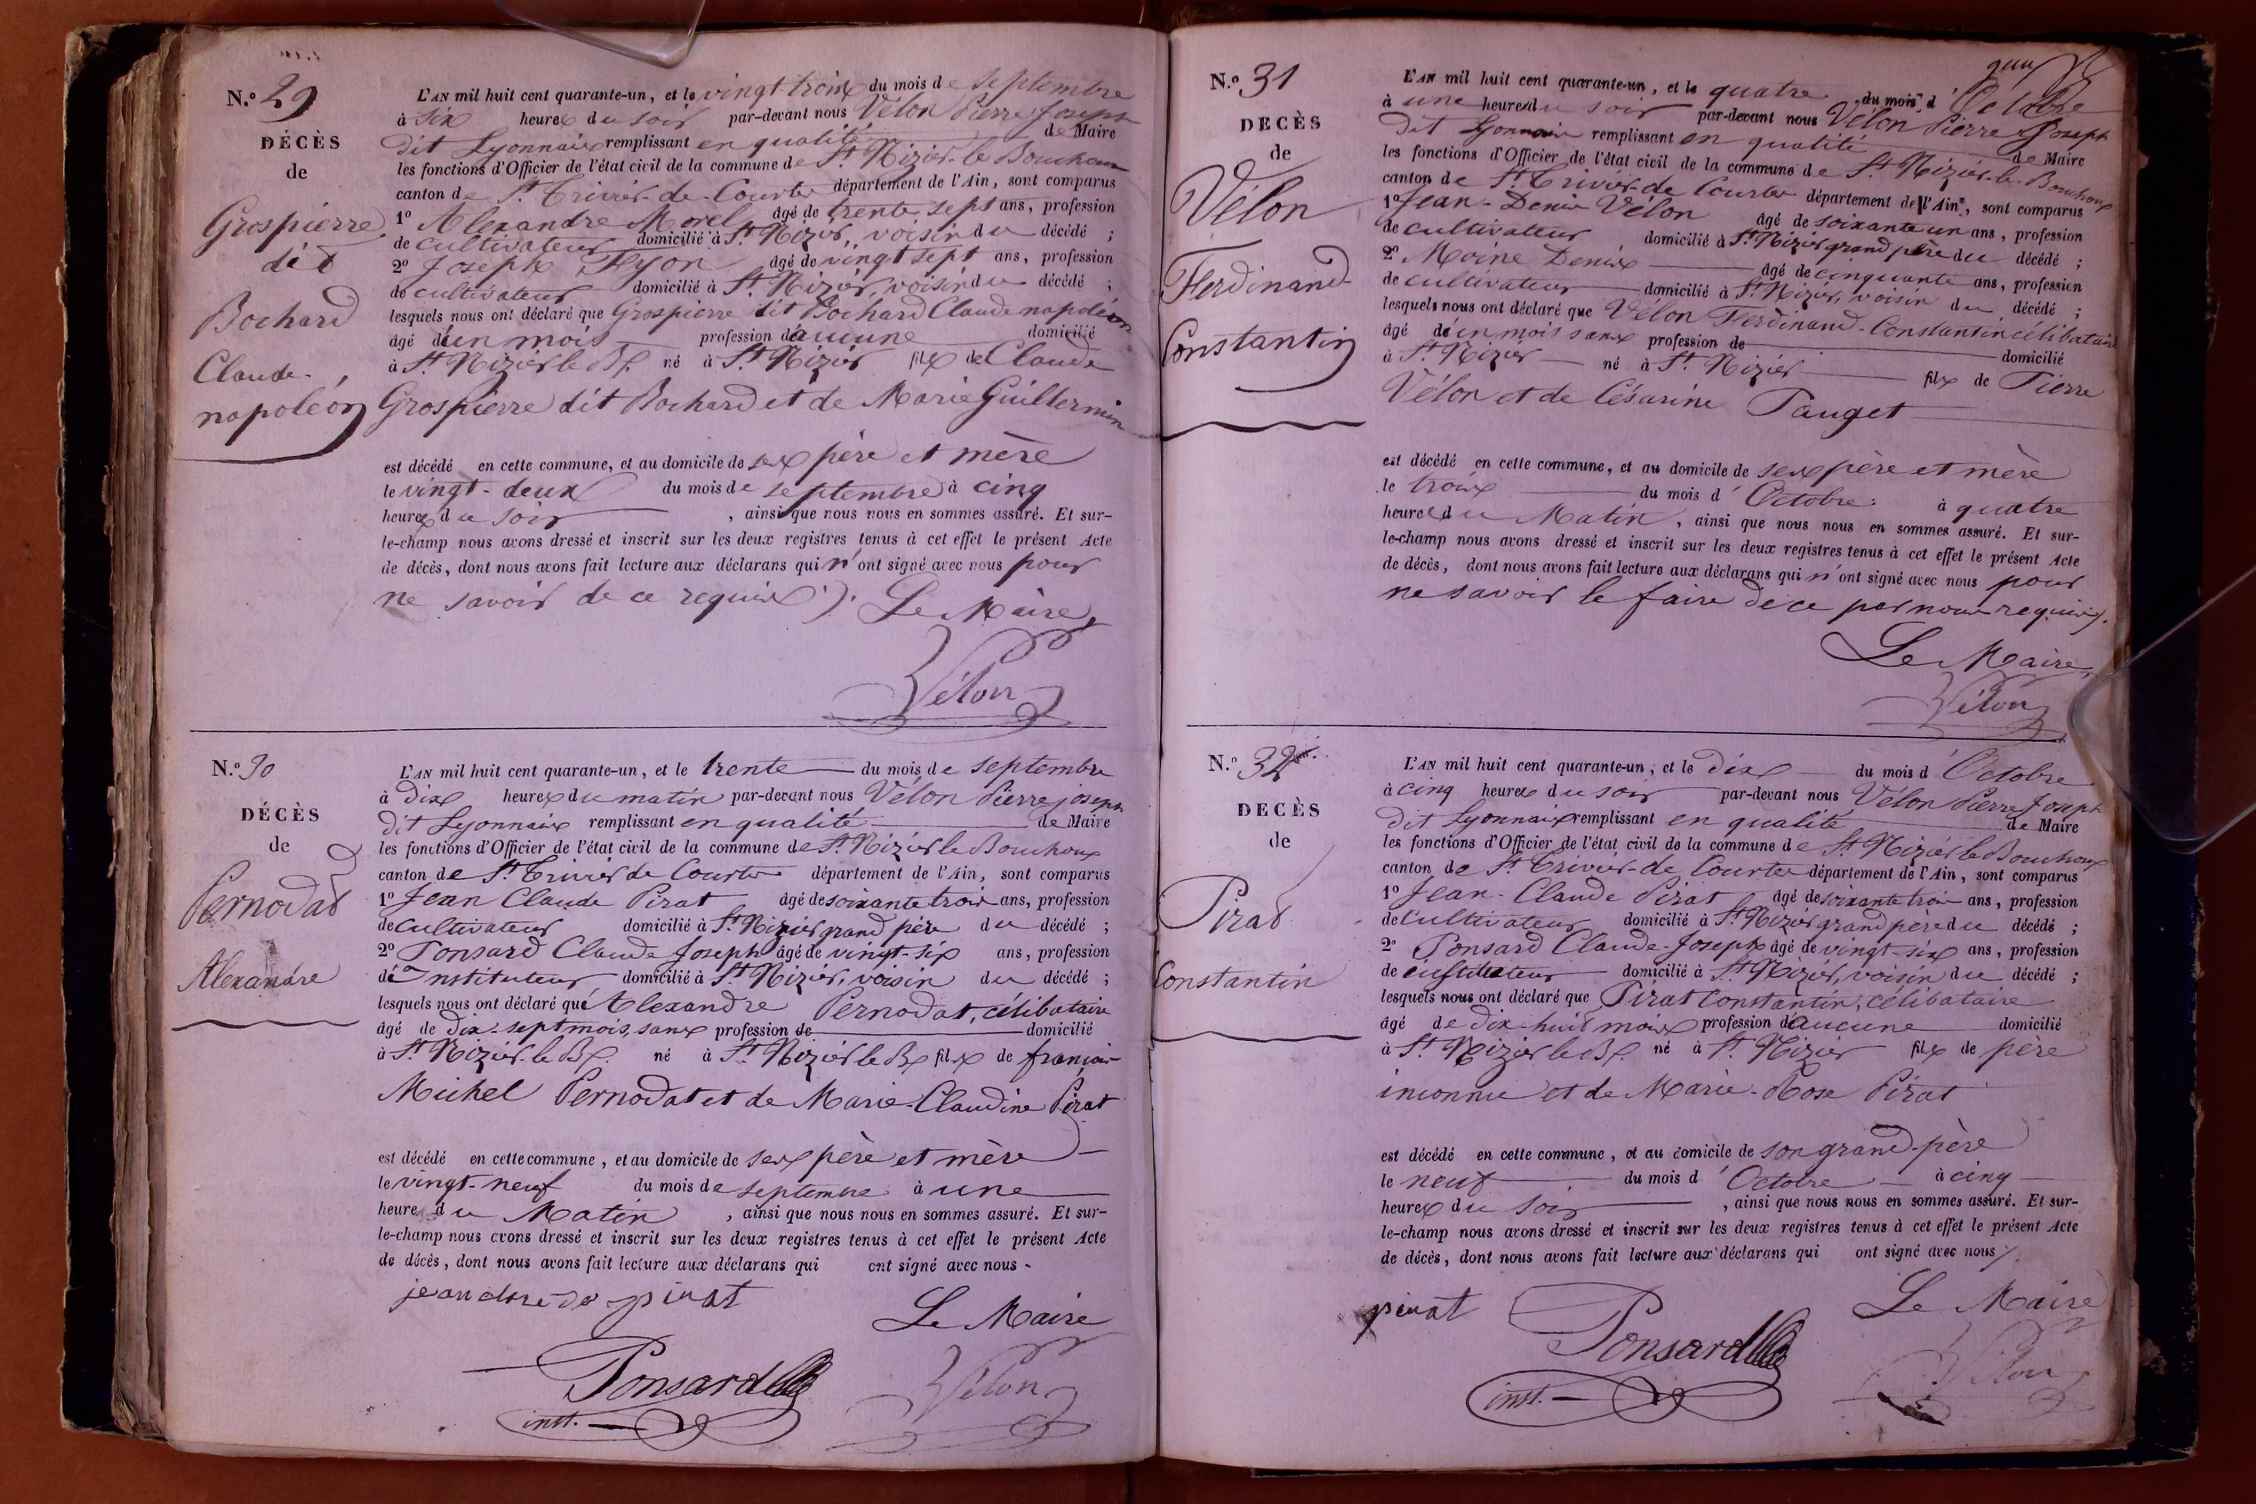 N.º 29
DÉCÈS
de
Grospierre
dit
Bochard
Claude
napoléon
L'AN mil huit cent quarante-un, et le vingt trois du mois de septembre
à six heures du soir par-devant nous Vélon Pierre Joseph
dit Lyonnais remplissant en qualité de Maire
les fonctions d'Officier de l'état civil de la commune de St Nizier-le Bouchoux
canton de St Trivier-de-Courtes département de l'Ain, sont comparus
1º Alexandre Morel âgé de trente sept ans, profession
de cultivateur domicilié à St Nizier, voisin du décédé ;
2º Joseph âgé de vingt sept ans, profession
de cultivateur domicilié à St Nizier, voisin du décédé ;
lesquels nous ont déclaré que Grospierre dit Bochard Claude napoléon
âgé d'un mois profession d'aucune domicilié
à St Nizier le Bx né à St Nizier fils de Claude
Grospierre dit Bochard et de Marie Guillermin
est décédé en cette commune, et au domicile de ses père et mère
le vingt-deux du mois de septembre à cinq
heures du soir , ainsi que nous nous en sommes assuré. Et sur-
le-champ nous avons dressé et inscrit sur les deux registres tenus à cet effet le présent Acte
de décès, dont nous avons fait lecture aux déclarans qui n'ont signé avec nous pour
ne savoir de ce requis ./. Le Maire
Vélon
N.º 30
DÉCÈS
de
Pernodat
Alexandre
L'AN mil huit cent quarante-un, et le trente du mois de septembre
à dix heures du matin par-devant nous Vélon Pierre joseph
dit Lyonnais remplissant en qualité de Maire
les fonctions d'Officier de l'état civil de la commune de St Nizier le Bouchoux
canton de St Trivier de Courtes département de l'Ain, sont comparus
1º Jean Claude Pirat âgé de soixante trois ans, profession
de cultivateur domicilié à St Nizier grand père du décédé ;
2º Ponsard Claude Joseph âgé de vingt-six ans, profession
d'Instituteur domicilié à St Nizier, voisin du décédé ;
lesquels nous ont déclaré que Alexandre Pernodat, célibataire
âgé de dix-sept mois, sans profession de domicilié
à St Nizier-le Bx né à St Nizier le Bx fils de françois
Michel Pernodat et de Marie-Claudine Pirat
est décédé en cette commune, et au domicile de ses père et mère
le vingt-neuf du mois de septembre à une
heure du Matin , ainsi que nous nous en sommes assuré. Et sur-
le-champ nous avons dressé et inscrit sur les deux registres tenus à cet effet le présent Acte
de décès, dont nous avons fait lecture aux déclarans qui ont signé avec nous -
pirat Le Maire
Ponsard Vélon
inst.
N.º 31
DECÈS
de
Vélon
Ferdinand
Constantin
L'AN mil huit cent quarante-un, et le quatre du mois d'Octobre
à une heure du soir par-devant nous Vélon Pierre Joseph
dit Lyonnais remplissant en qualité de Maire
les fonctions d'Officier de l'état civil de la commune de St Nizier-le-Bouchoux
canton de St Trivier-de Courtes département de l'Ain, sont comparus
1º Jean-Denis Vélon âgé de soixante un ans, profession
de cultivateur domicilié à St Nizier grand père du décédé ;
2º Moine Denis âgé de cinquante ans, profession
de cultivateur domicilié à St Nizier, voisin du décédé ;
lesquels nous ont déclaré que Vélon Ferdinand-Constantin célibataire
âgé d'un mois sans profession de domicilié
à St Nizier né à St Nizier fils de Pierre
Vélon et de Césarine Pauget
est décédé en cette commune, et au domicile de ses père et mère
le trois du mois d'Octobre à quatre
heures du Matin, ainsi que nous nous en sommes assuré. Et sur-
le-champ nous avons dressé et inscrit sur les deux registres tenus à cet effet le présent Acte
de décès, dont nous avons fait lecture aux déclarans qui n'ont signé avec nous pour
ne savoir le faire de ce par nous requis ./.
Le Maire
Vélon
N.º 32
DECÈS
de
Pirat
Constantin
L'AN mil huit cent quarante-un, et le dix du mois d'Octobre
à cinq heures du soir par-devant nous Vélon Pierre Joseph
dit Lyonnais remplissant en qualité de Maire
les fonctions d'Officier de l'état civil de la commune de St Nizier le Bouchoux
canton de St Trivier-de Courtes département de l'Ain, sont comparus
1º Jean-Claude Pirat âgé de soixante trois ans, profession
de cultivateur domicilié à St Nizier grand père du décédé ;
2º Ponsard Claude-Joseph âgé de vingt-six ans, profession
de instituteur domicilié à St Nizier, voisin du décédé ;
lesquels nous ont déclaré que Pirat Constantin, célibataire
âgé de dix-huit mois profession d'aucune domicilié
à St Nizier le Bx né à St Nizier fils de père
inconnu et de Marie-Rose Pirat
est décédé en cette commune, et au domicile de son grand-père
le neuf du mois d'Octobre à cinq
heures du soir , ainsi que nous nous en sommes assuré. Et sur-
le-champ nous avons dressé et inscrit sur les deux registres tenus à cet effet le présent Acte
de décès, dont nous avons fait lecture aux déclarans qui ont signé avec nous ./.
pirat Le Maire
Ponsard Vélon
inst.